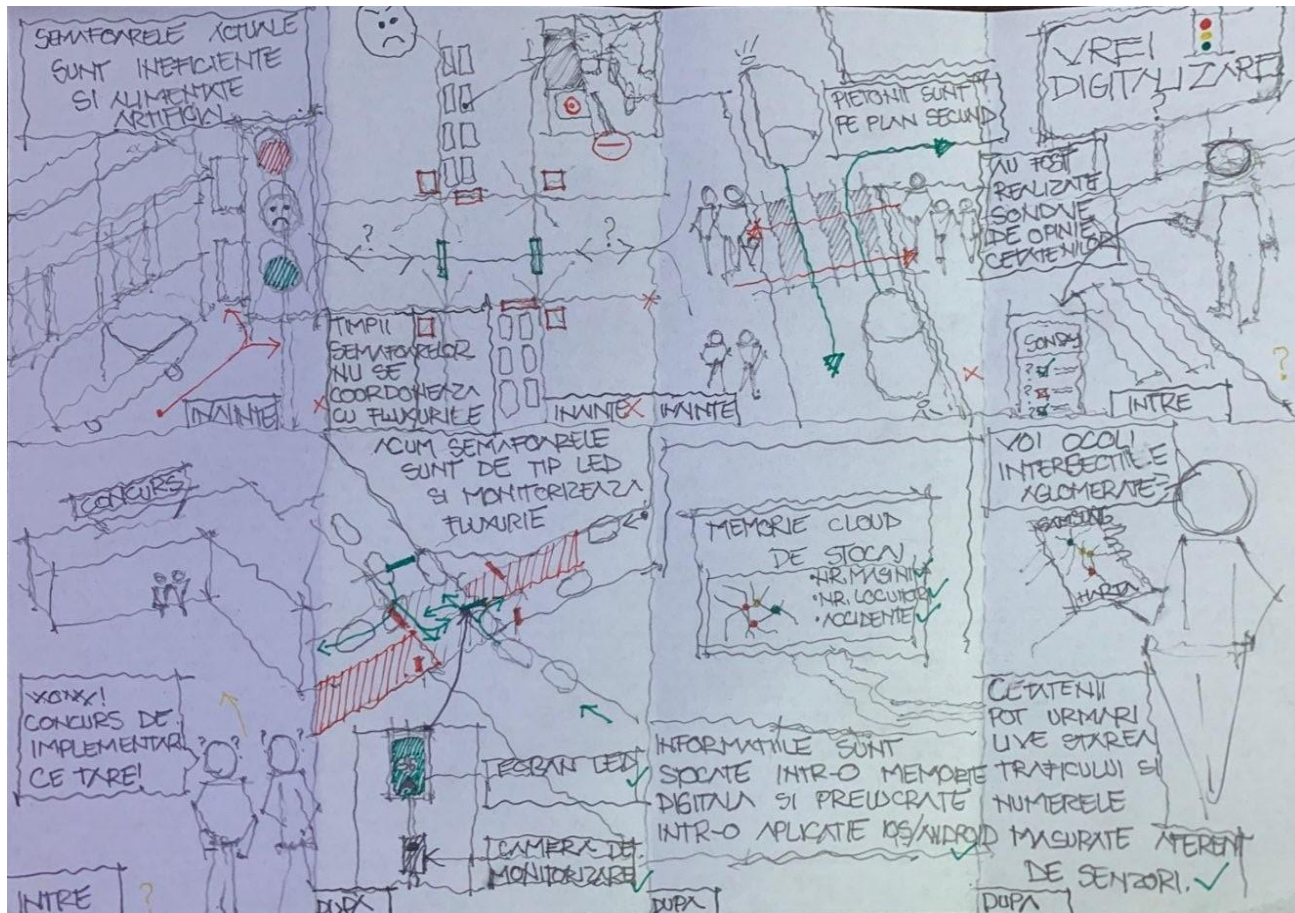 SEMAFOARELE ACTUALE
SUNT INEFICIENTE
SI ALIMENTATE
ARTIFICIAL
INAINTE
?
?
TIMPII
SEMAFOARELOR
NU SE
COORDONEAZA
CU FLUXURILE
INAINTE
PIETONII SUNT
PE PLAN SECUND
INAINTE
VREI
DIGITALIZARE
?
AU FOST
REALIZATE
SONDAJE
DE OPINIE
CETATENILOR
SONDAJ
?
?
?
?
INTRE
CONCURS
? ? ? ?
CONCURS DE
IMPLEMENTARE
CE TARE!
INTRE
?
ACUM SEMAFOARELE
SUNT DE TIP LED
SI MONITORIZEAZA
FLUXURIE
ECRAN LED
CAMERA DE
MONITORIZARE
DUPA
MEMORIE CLOUD
DE STOCAJ
• NR. MASINI
• NR. LOCUITORI
• ACCIDENTE
INFORMATIILE SUNT
STOCATE INTR-O MEMORIE
DIGITALA SI PRELUCRATE
INTR-O APLICATIE IOS/ANDROID
DUPA
VOI OCOLI
INTERSECTIILE
AGLOMERATE
SAMSUNG
HARTA
CETATENII
POT URMARI
LIVE STAREA
TRAFICULUI SI
NUMERELE
MASURATE AFERENT
DE SENZORI.
DUPA